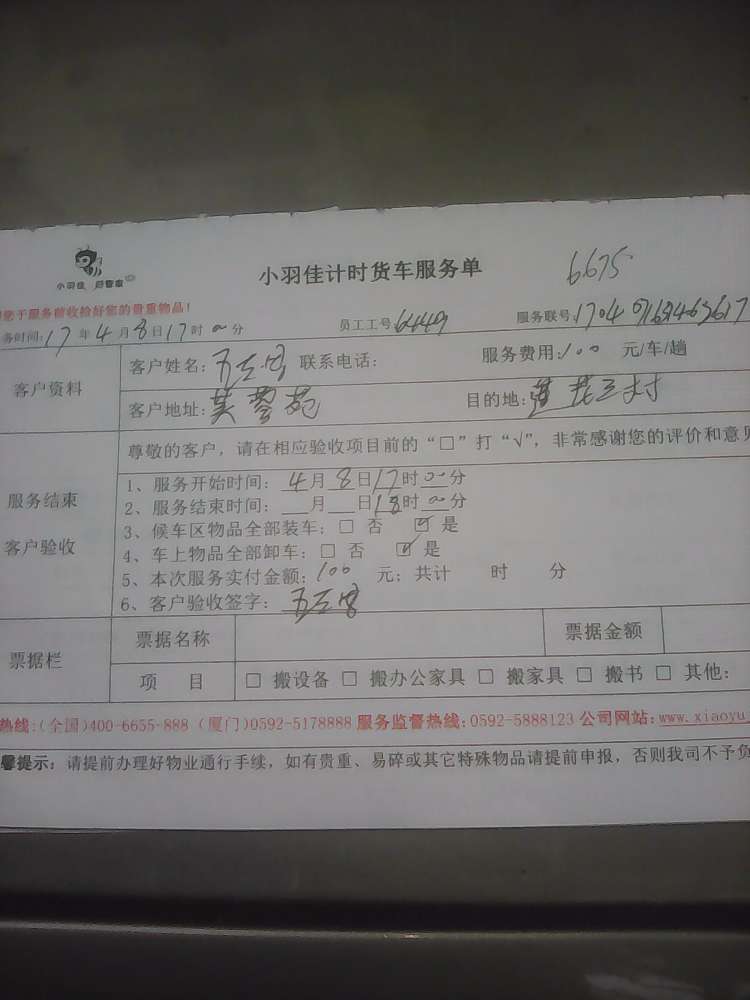 小羽佳 好管家
小羽佳计时货车服务单 6675
便于服务前收捡好您的贵重物品!
务时间:17年4月8日17时00分 员工工号:6449 服务联号:
客户资料
客户姓名: 联系电话: 服务费用:100 元/车/趟
客户地址:芙蓉苑 目的地:莲花三村
服务结束
客户验收
尊敬的客户,请在相应验收项目前的“□”打“√”,非常感谢您的评价和意见
1、服务开始时间:4月8日17时00分
2、服务结束时间:__月__日18时00分
3、候车区物品全部装车:□ 否 ☑ 是
4、车上物品全部卸车:□ 否 ☑ 是
5、本次服务实付金额:100 元;共计 时 分
6、客户验收签字:
票据栏
票据名称 票据金额
项 目 □ 搬设备 □ 搬办公家具 □ 搬家具 □ 搬书 □ 其他:
热线:(全国)400-6655-888 (厦门)0592-5178888 服务监督热线:0592-5888123 公司网站:www.xiaoyu
馨提示:请提前办理好物业通行手续,如有贵重、易碎或其它特殊物品请提前申报,否则我司不予负